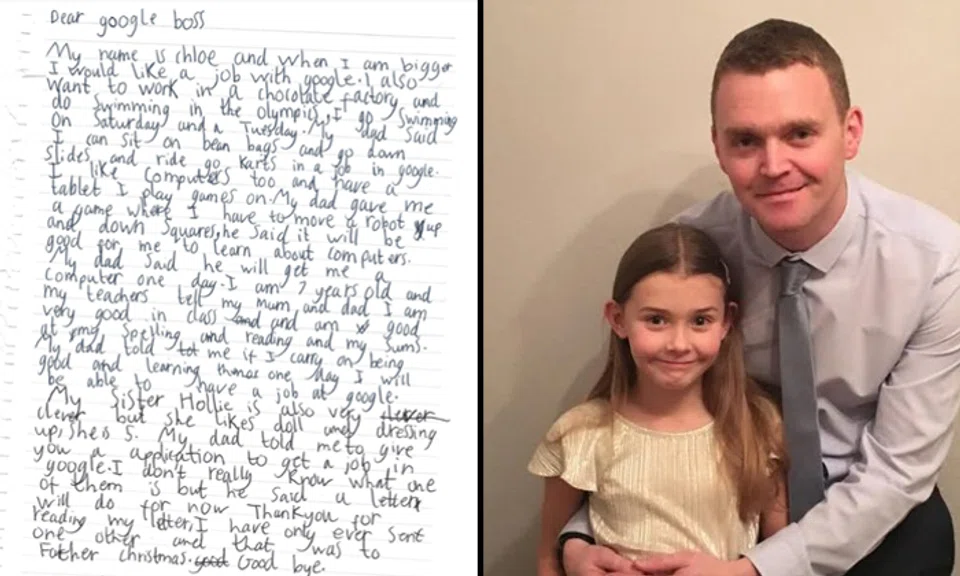 Dear google boss
My name is chloe and when I am bigger
I would like a job with google. I also
want to work in a chocolate factory and
do swimming in the olympics, I go swimming
on Saturday and a Tuesday. My dad said
I can sit on bean bags and go down
slides and ride go karts in a job in google.
I like computers too and have a
tablet I play games on. My dad gave me
a game where I have to move a robot up
and down squares, he said it will be
good for me to learn about computers.
My dad said he will get me a
computer one day. I am 7 years old and
my teachers tell my mum and dad I am
very good in class and and am good
at my spelling and reading and my sums.
My dad told tot me if I carry on being
good and learning one day I will
be able to have a job at google.
My Sister Hollie is also very clever
clever but she likes doll and dressing
up, she is 5. My dad told me to give
you a application to get a job in
google. I don't really know what one
of them is but he said a letter
will do for now Thankyou for
reading my letter, I have only ever sent
one other and that was to
Father christmas. good Good bye.